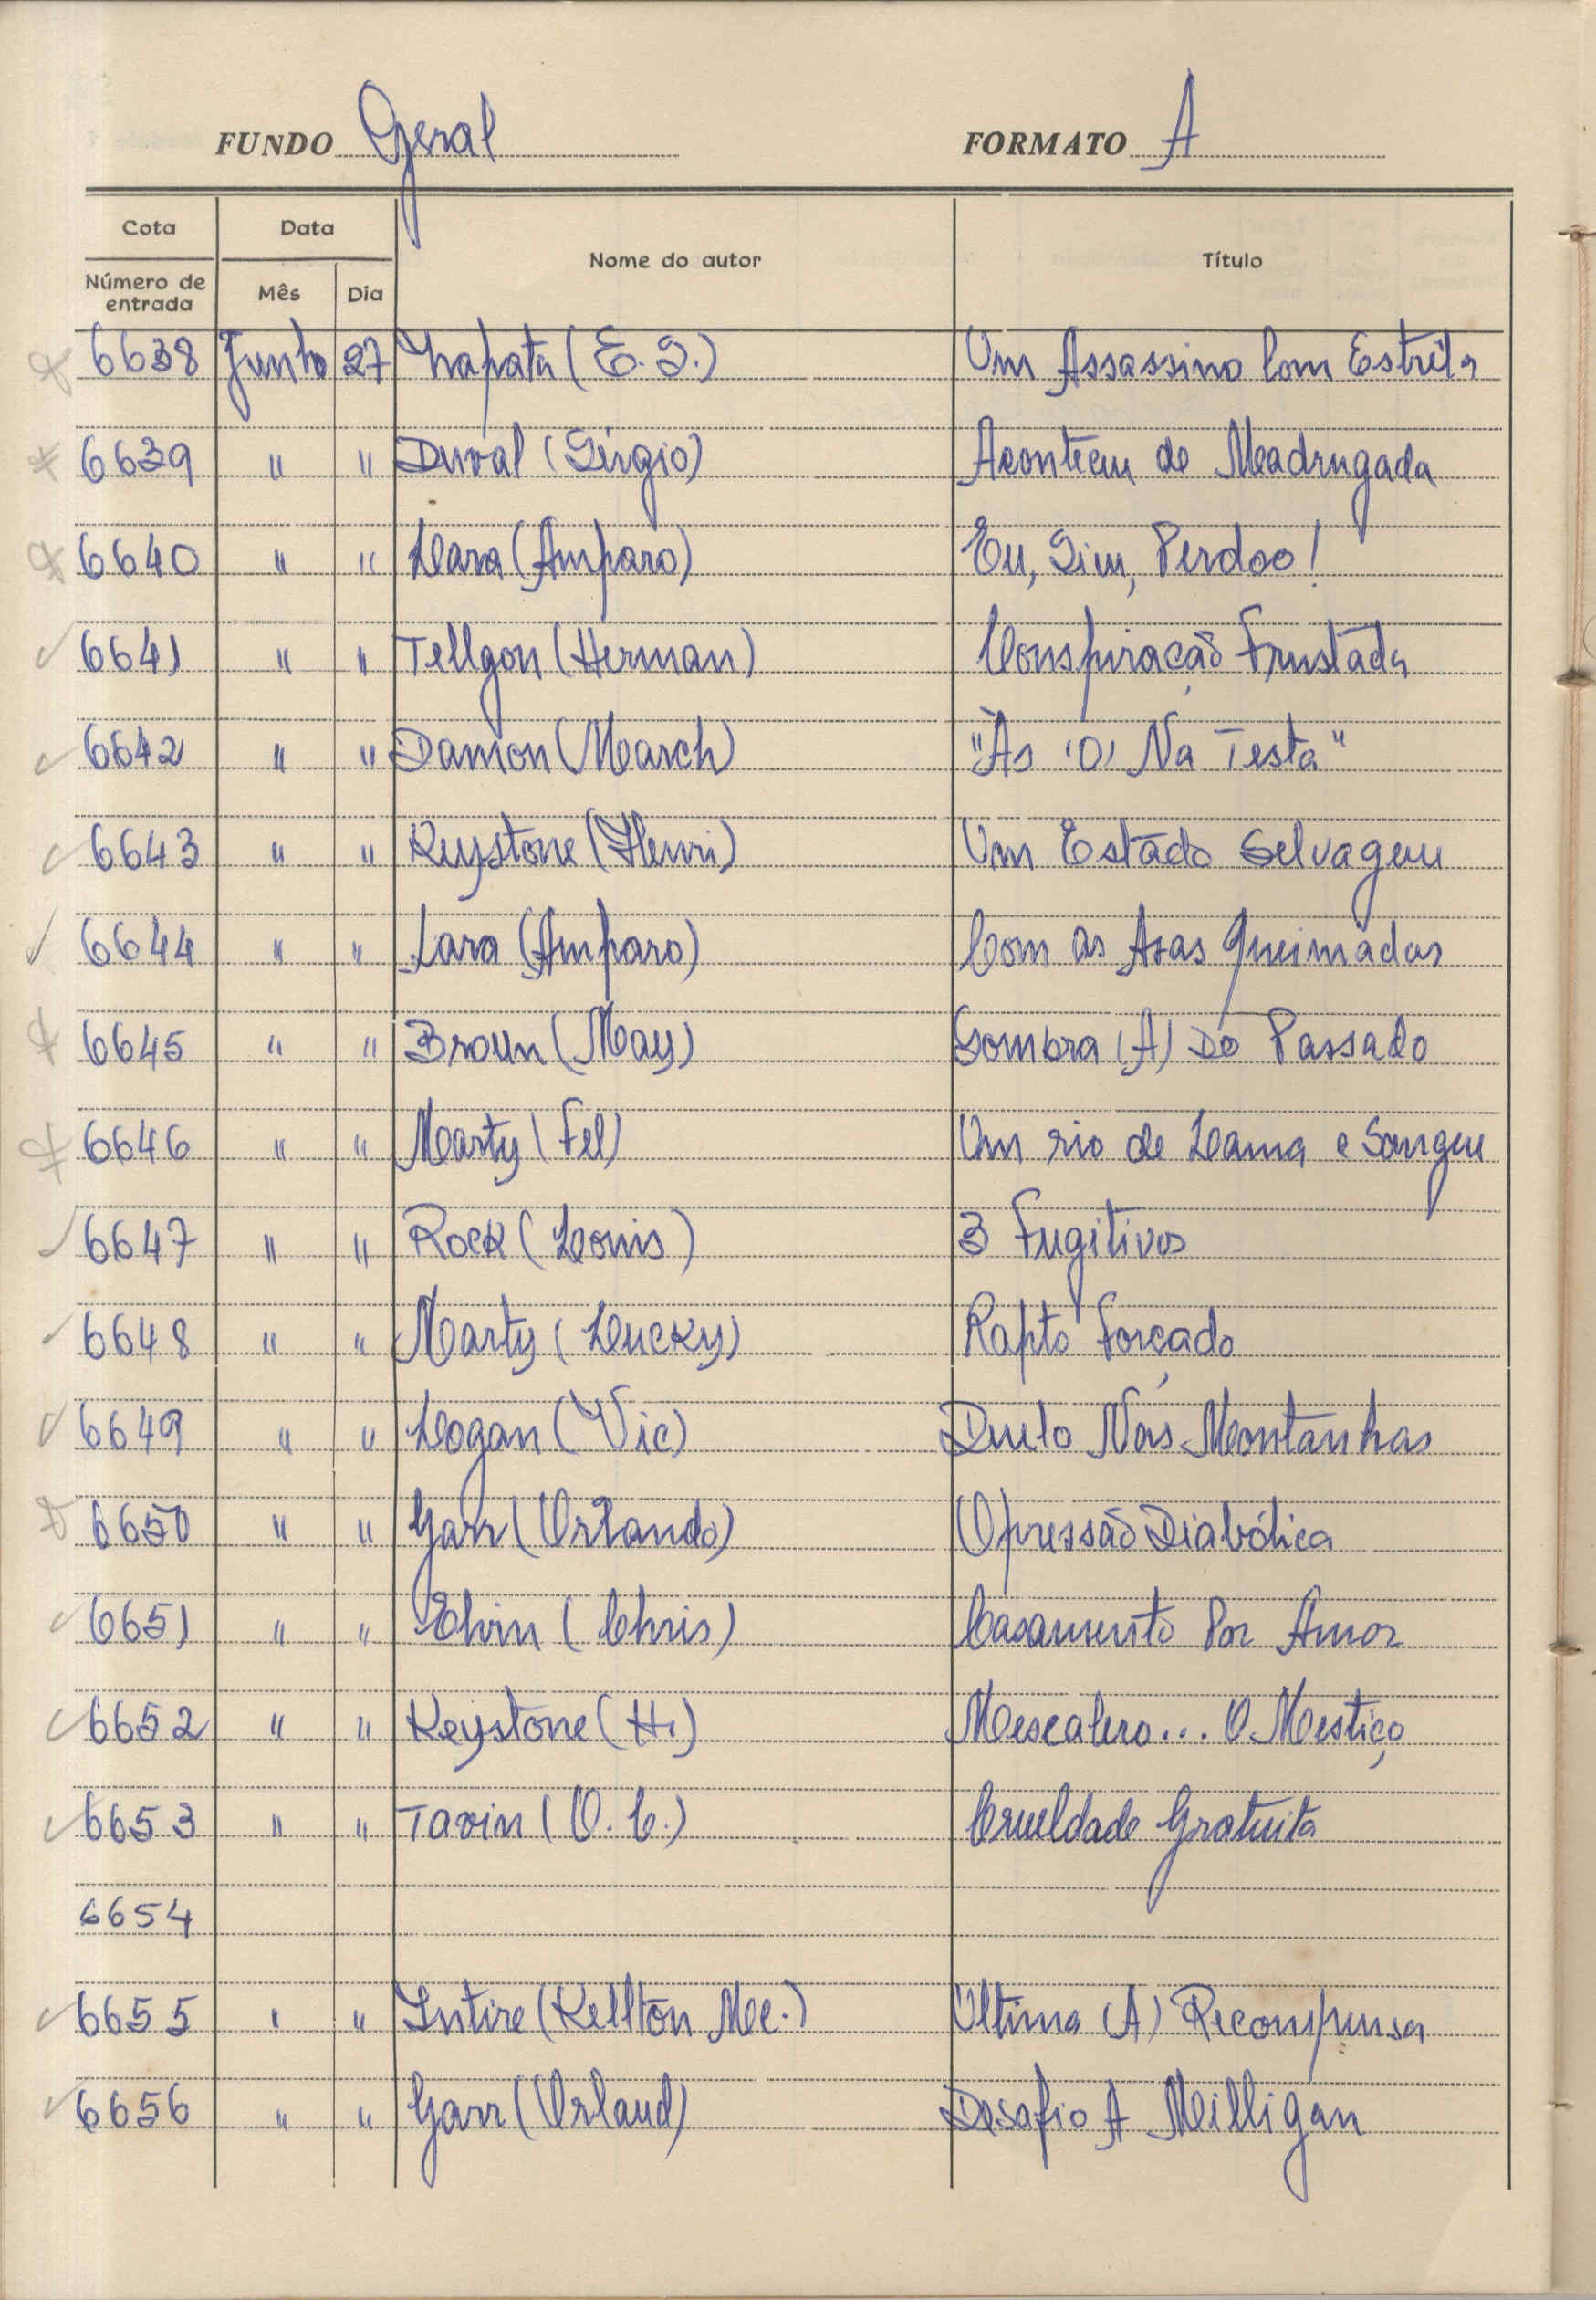 FUNDO Geral FORMATO A
Cota Data Nome do autor Título
Número de entrada Mês Dia
6638 Junho 27 Zapata (E. S.) Um Assassino Com Estrêla
6639 " " Duval (Sérgio) Aconteceu de Madrugada
6640 " " Lara (Amparo) Eu, Sim, Perdoo!
6641 " " Tellgon (Herman) Conspiração Frustada
6642 " " Damon (March) "Às '0' Na Testa"
6643 " " Keystone (Henri) Um Estado Selvagem
6644 " " Lara (Amparo) Com as Asas Queimadas
6645 " " Broun (May) Sombra (A) Do Passado
6646 " " Marty (Fel) Um rio de Lama e Sangue
6647 " " Rock (Louis) 3 Fugitivos
6648 " " Marty (Lucky) Rapto Forçado
6649 " " Logan (Vic) Duelo Nas Montanhas
6650 " " Garr (Orlando) Opressão Diabólica
6651 " " Elvin (Chris) Casamento Por Amor
6652 " " Keystone (H.) Mescalero... O Mestiço
6653 " " Tavin (O. C.) Crueldade Gratuita
6654
6655 " " Intire (Kellton Mc.) Última (A) Recompensa
6656 " " Garr (Orland) Desafio A Milligan